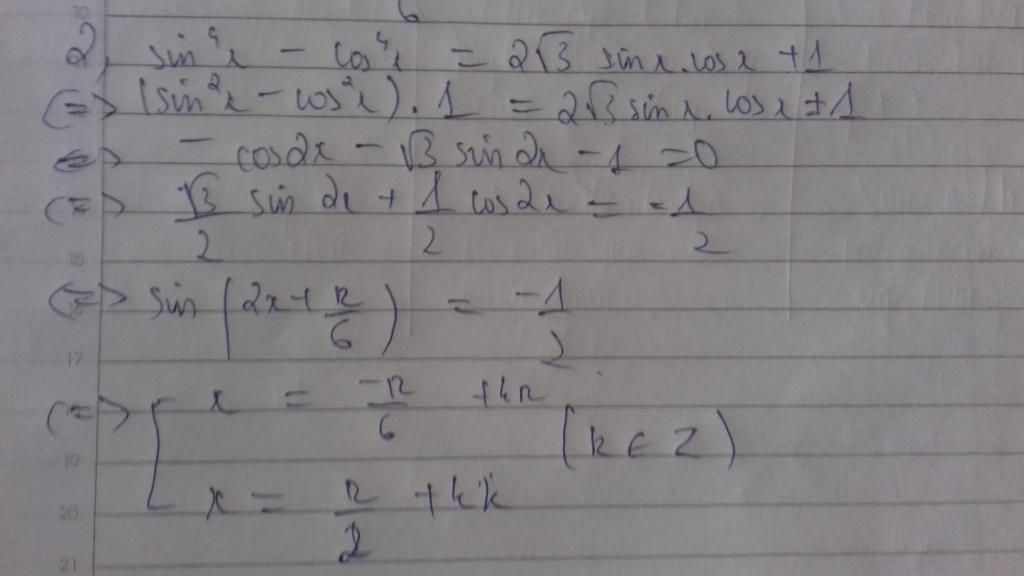 2, sin⁴x − cos⁴x = 2√3 sinx.cosx +1
(=> (sin²x − cos²x).1 = 2√3 sinx.cosx +1
<=> − cos2x − √3 sin2x − 1 = 0
(=> √3/2 sin 2x + 1/2 cos2x = -1/2
(=> sin(2x+π/6) = −1/2
(=> [ x = −π/6 + kπ
(k ∈ Z)
x = π/2 + kπ
15
17
19
20
21